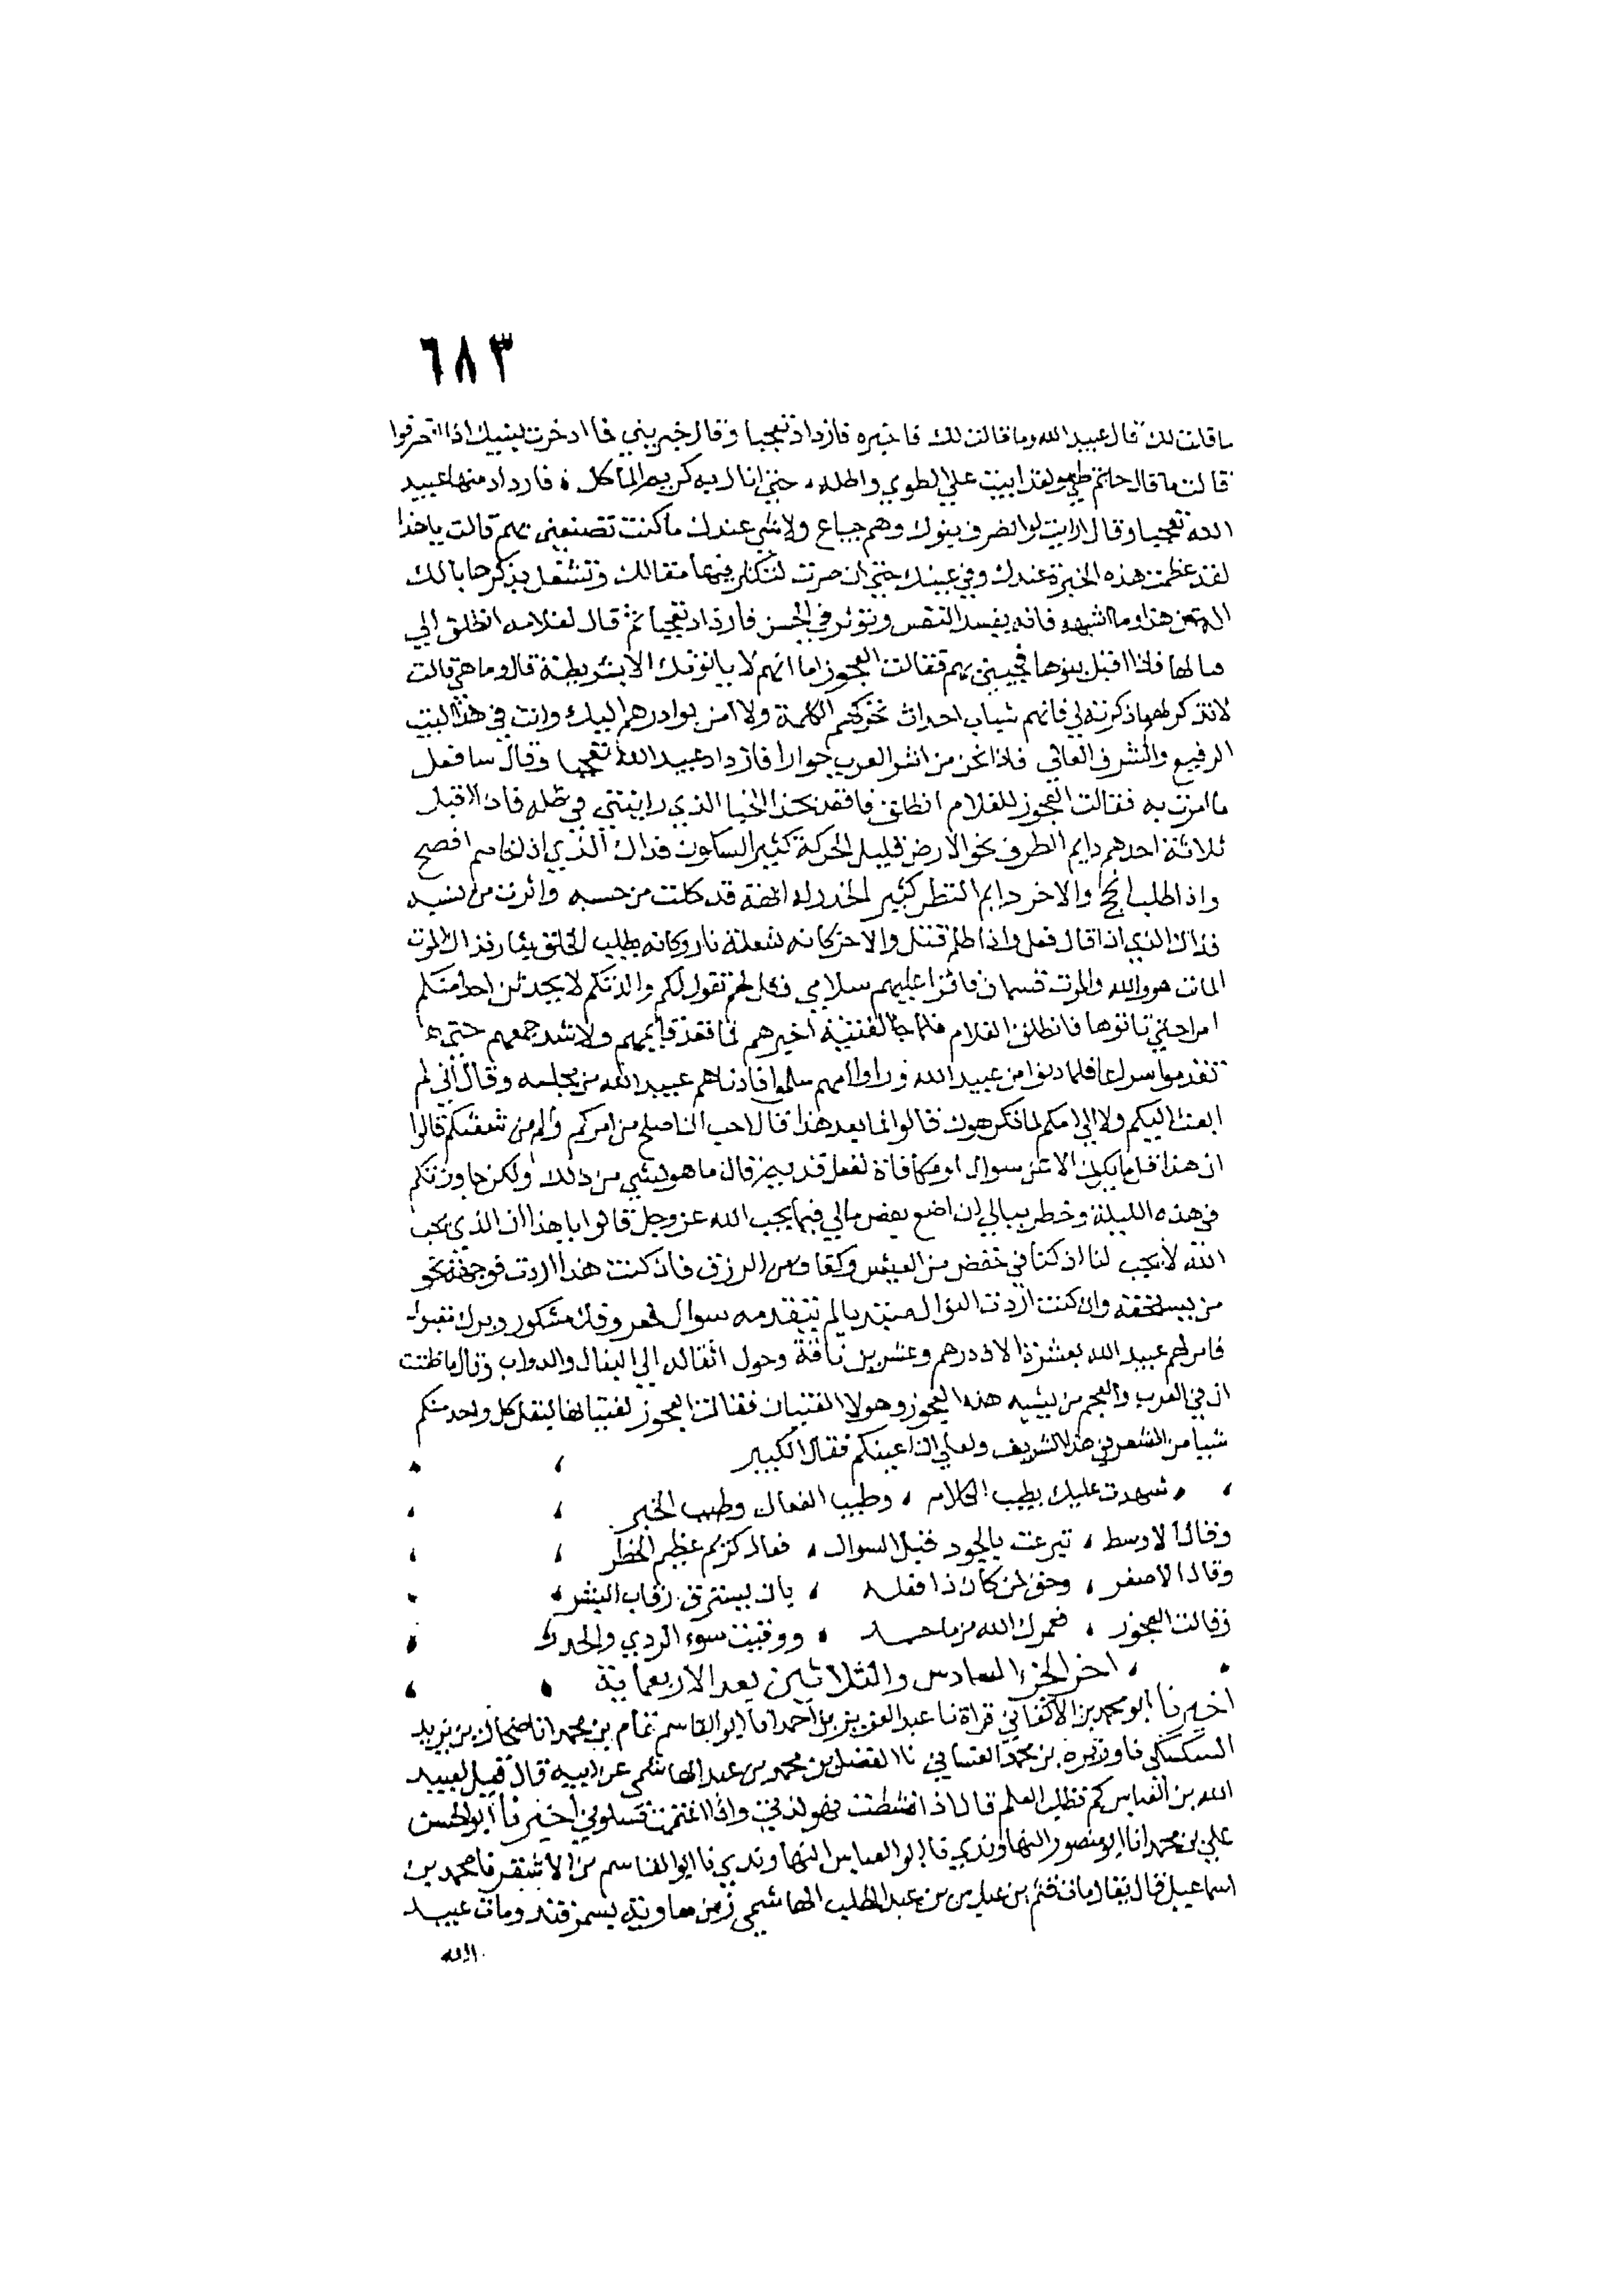 ٦٨٣
ما قالت لك قال عبيد الله وما قالت لك فاخبره فازداد تعجبا وقال خبريني فما ادخرت لبنيك اذا انصرفوا
قالت ما قال حاتم طي ولقد ابيت علي الطوي واظله، حتي انال به كريم الماكل، فازداد منها عبيد
الله تعجبا وقال ارايت لو انصرف بنوك وهم جياع ولا شي عندك ما كنت تصنعين بهم قالت يا هذا
لقد عظمت هذه الخبزة عندك وفي عينك حتي ان صرت لتكثر فيها مقالك وتشغل بذكرها بالك
اله عن هذا وما اشبهه فانه يفسد النفس ويوثر في الحس فازداد تعجبا ثم قال لغلامه انطلق الي
فتالها فاذا اقبل بنوها فجيني بهم فقالت العجوز اما انهم لا ياتونك الا بشريطة قال وما هي قالت
لا تذكر لهم ما ذكرته لي فانهم شباب احداث تحركهم الكلمة ولا امن بوادرهم اليك وانت في هذا البيت
الرفيع والشرف العالي فاذا نحن من اشر العرب جوارا فازداد عبيد الله تعجبا وقال سافعل
ما امرت به فقالت العجوز للغلام انطلق فاقعد بحذا الخبا الذي رايتني في ظله فاذا اقبل
ثلاثة احدهم دايم الطرف نحو الارض قليل الحركة كثير السكون فذاك الذي اذا خاصم افصح
واذا طلب انجح والاخر دايم النظر كثير الحذر له ابهة قد كملت من حسبه واثرت من نسبه
فذاك الذي اذا قال فعل واذا ظلم قتل والاخر كانه شعلة نار وكانه يطلب الخلق بثار فذاك الموت
المايت هو والله والموت قسمان فاقرا عليهم سلامي وقل لهم تقول لكم والدتكم لا يحدثن احد منكم
امرا حتي تاتوها فانطلق الغلام فلما جا الفتية اخبرهم فما قعد قايمهم ولا شد جمعهم حتي
تقدموا سراعا فلما دنوا من عبيد الله وراوا امهم سلموا فادناهم عبيد الله من مجلسه وقال اني لم
ابعث اليكم ولا الي امكم لما تكرهون قالوا فما بعد هذا قال احب ان اصلح من امركم والم من شعثكم قالوا
ان هذا قل ما يكون الا عن سوال او مكافاة لفعل قديم قال ما هو لشي من ذلك ولكن جاورتكم
في هذه الليلة وخطر ببالي ان اضع بعض مالي فيما يحب الله عز وجل قالوا يا هذا ان الذي يحب
الله لا يجب لنا اذ كنا في خفض من العيش وكفاف من الرزق فان كنت هذا اردت فوجهه نحو
من يستحقه وان كنت اردت النوال مبتديا لم يتقدمه سوال فمعروفك مشكور وبرك مقبول
فامر لهم عبيد الله بعشرة الاف درهم وعشرين ناقة وحول اثقاله الي البغال والدواب وقال ما ظننت
ان في العرب والعجم من يشبه هذه العجوز وهولا الفتيان فقالت العجوز لفتيانها ليقل كل واحد منكم
شيا من الشعر في هذا الشريف ولعلي ان اعينكم فقال الكبير
شهدت عليك بطيب الكلام، وطيب الفعال وطيب الخبر
وقال الاوسط، تبرعت بالجود قبل السوال، فعال كريم عظيم الخطر
وقال الاصغر، وحق لمن كان ذا فعله، بان يسترق رقاب البشر
وقالت العجوز، فعمرك الله من ماجد، ووقيت سوء الردي والحذر
، اخر الجزء السادس والثلاثين بعد الاربعماية
اخبرنا ابو محمد بن الاكفاني قراة نا عبد العزيز بن احمد انا ابو القاسم تمام بن محمد انا ضحاك بن يزيد
السكسكي نا وزيرة بن محمد الغساني نا الفضل بن محمد بن عبد الهاشمي عن ابيه قال قيل لعبيد
الله بن العباس كم تطلب العلم قال اذا نشطت فهو لذتي واذا اغتممت فسلوتي اخبرنا ابو الحسن
علي بن محمد انا ابو منصور النهاوندي نا ابو العباس النهاوندي نا ابو القاسم بن الاشقر نا محمد بن
اسماعيل قال يقال مات قثم بن عباس بن عبد المطلب الهاشمي زمن معاوية بسمرقند ومات عبيد
الله